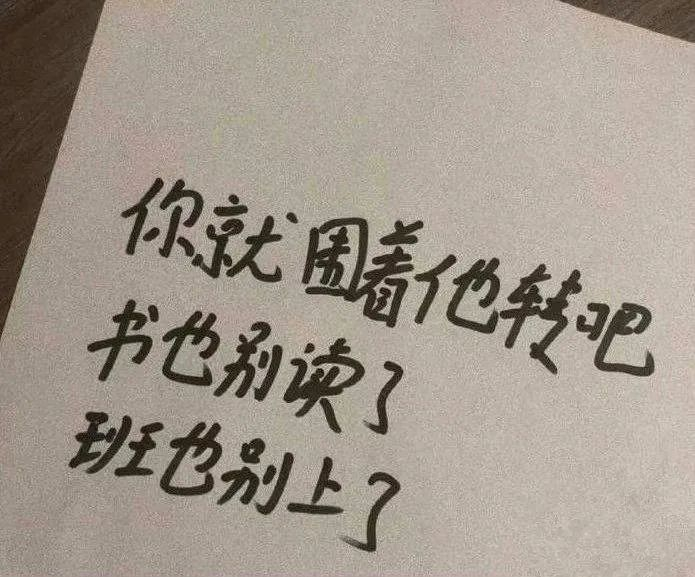 你就围着他转吧
书也别读了
班也别上了